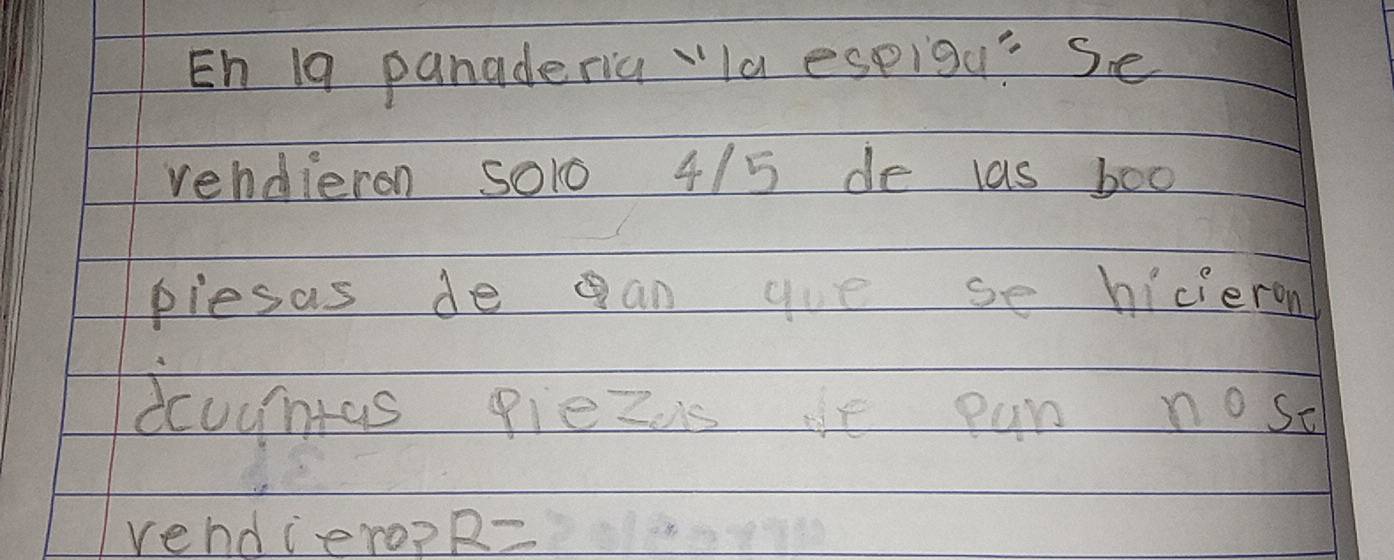 En la panaderia "la espiga". Se
vendieron solo 4/5 de las 600
piesas de pan que se hicieron
¿cuántas piezas de pan no se
vendiero? R=